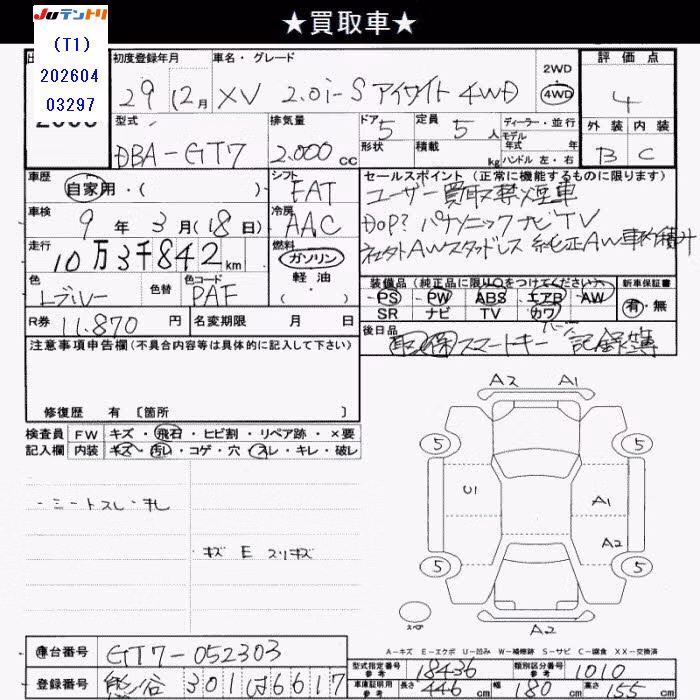 ★買取車★
JUテントリ
(T1)
202604
03297
初度登録年月 車名・グレード 評価点
29年 12月 XV 2.0i-S アイサイト 4WD 2WD 4WD 4
型式 排気量 ドア 定員 ディーラー・並行 外装 内装
DBA-GT7 2.000cc 5 5人 モデル年式 年 B C
形状 積載 kg ハンドル 左・右
車歴 シフト セールスポイント (正常に機能するものに限ります)
自家用・( ) FAT ユーザー買取 禁煙車
車検 冷房
9年3月(18日) AAC DOP? パナソニックナビTV
走行 燃料 社外AWスタッドレス 純正AW車内積み
10万3千842km ガソリン
軽油
・( )
色 色替 色コード 装備品 (純正品に限り○をつけてください) 新車保証書
ブルー PAF PS PW ABS エアB AW 有・無
SR ナビ TV カワ
R券 11,870円 名変期限 月 日 後日品
取 保 スマートキー 記録簿
注意事項申告欄 (不具合内容等は具体的に記入して下さい)
修復歴 有 〔箇所 〕
A2 A1
検査員 FW キズ・飛石・ヒビ割・リペア跡・×要
記入欄 内装 キズ・汚れ・コゲ・穴・スレ・キレ・破レ
5 5
U1 A1
A2
キズ E スリキズ
5 5
スペア
A2
A-キズ E-エクボ U-凹み W-補修跡 S-サビ C-腐食 XX-交換済
車台番号 GT7-052303
型式指定番号 参考 18436 類別区分番号 参考 1010
登録番号 熊谷 301 は 6617
車庫証明用 参考 長さ 446cm 幅 180cm 高さ 155cm